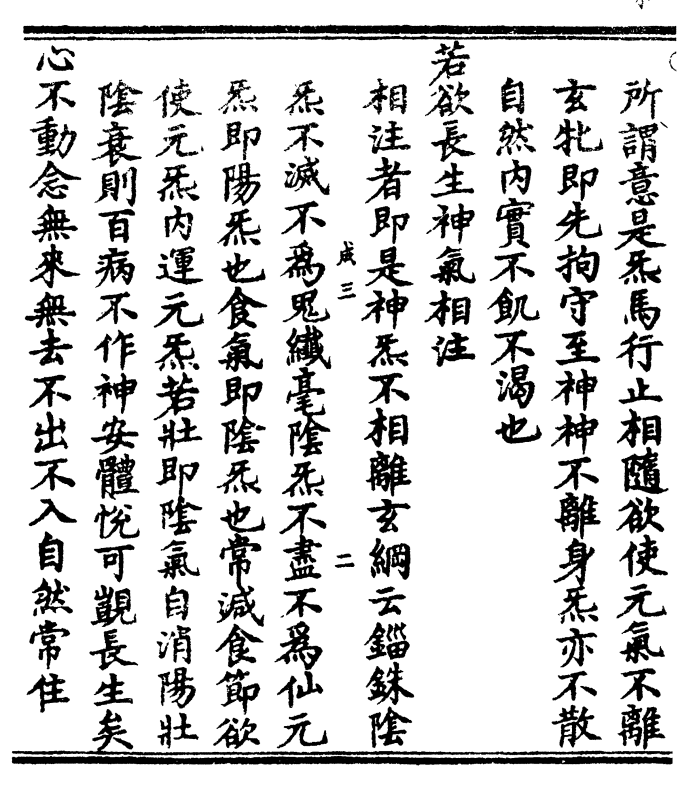 所謂意是炁馬行止相隨欲使元氣不離
玄牝即先拘守至神神不離身炁亦不散
自然内實不飢不渴也
若欲長生神氣相注
相注者即是神炁不相離玄綱云錙銖陰
炁不滅不爲鬼纖毫陰炁不盡不爲仙元
成三
二
炁即陽炁也食氣即陰炁也常減食節欲
使元炁内運元炁若壯即陰氣自消陽壯
陰衰則百病不作神安體悅可覬長生矣
心不動念無來無去不出不入自然常住